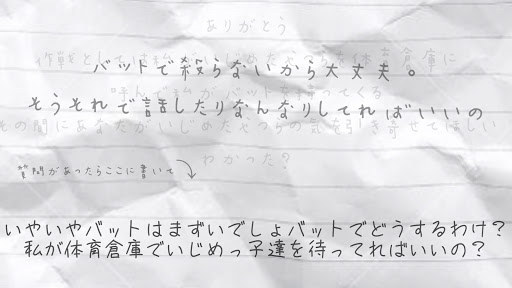 ありがとう
作戦としては私がいじめたやつらを体育倉庫に
バットで殺らないから大丈夫。
呼んで私がバットを持ってくる
そうそれで話したりなんなりしてればいいの
その間にあなたがいじめたやつらの気を引き寄せてほしい
わかった?
質問があったらここに書いて
いやいやバットはまずいでしょバットでどうするわけ?
私が体育倉庫でいじめっ子達を待ってればいいの?